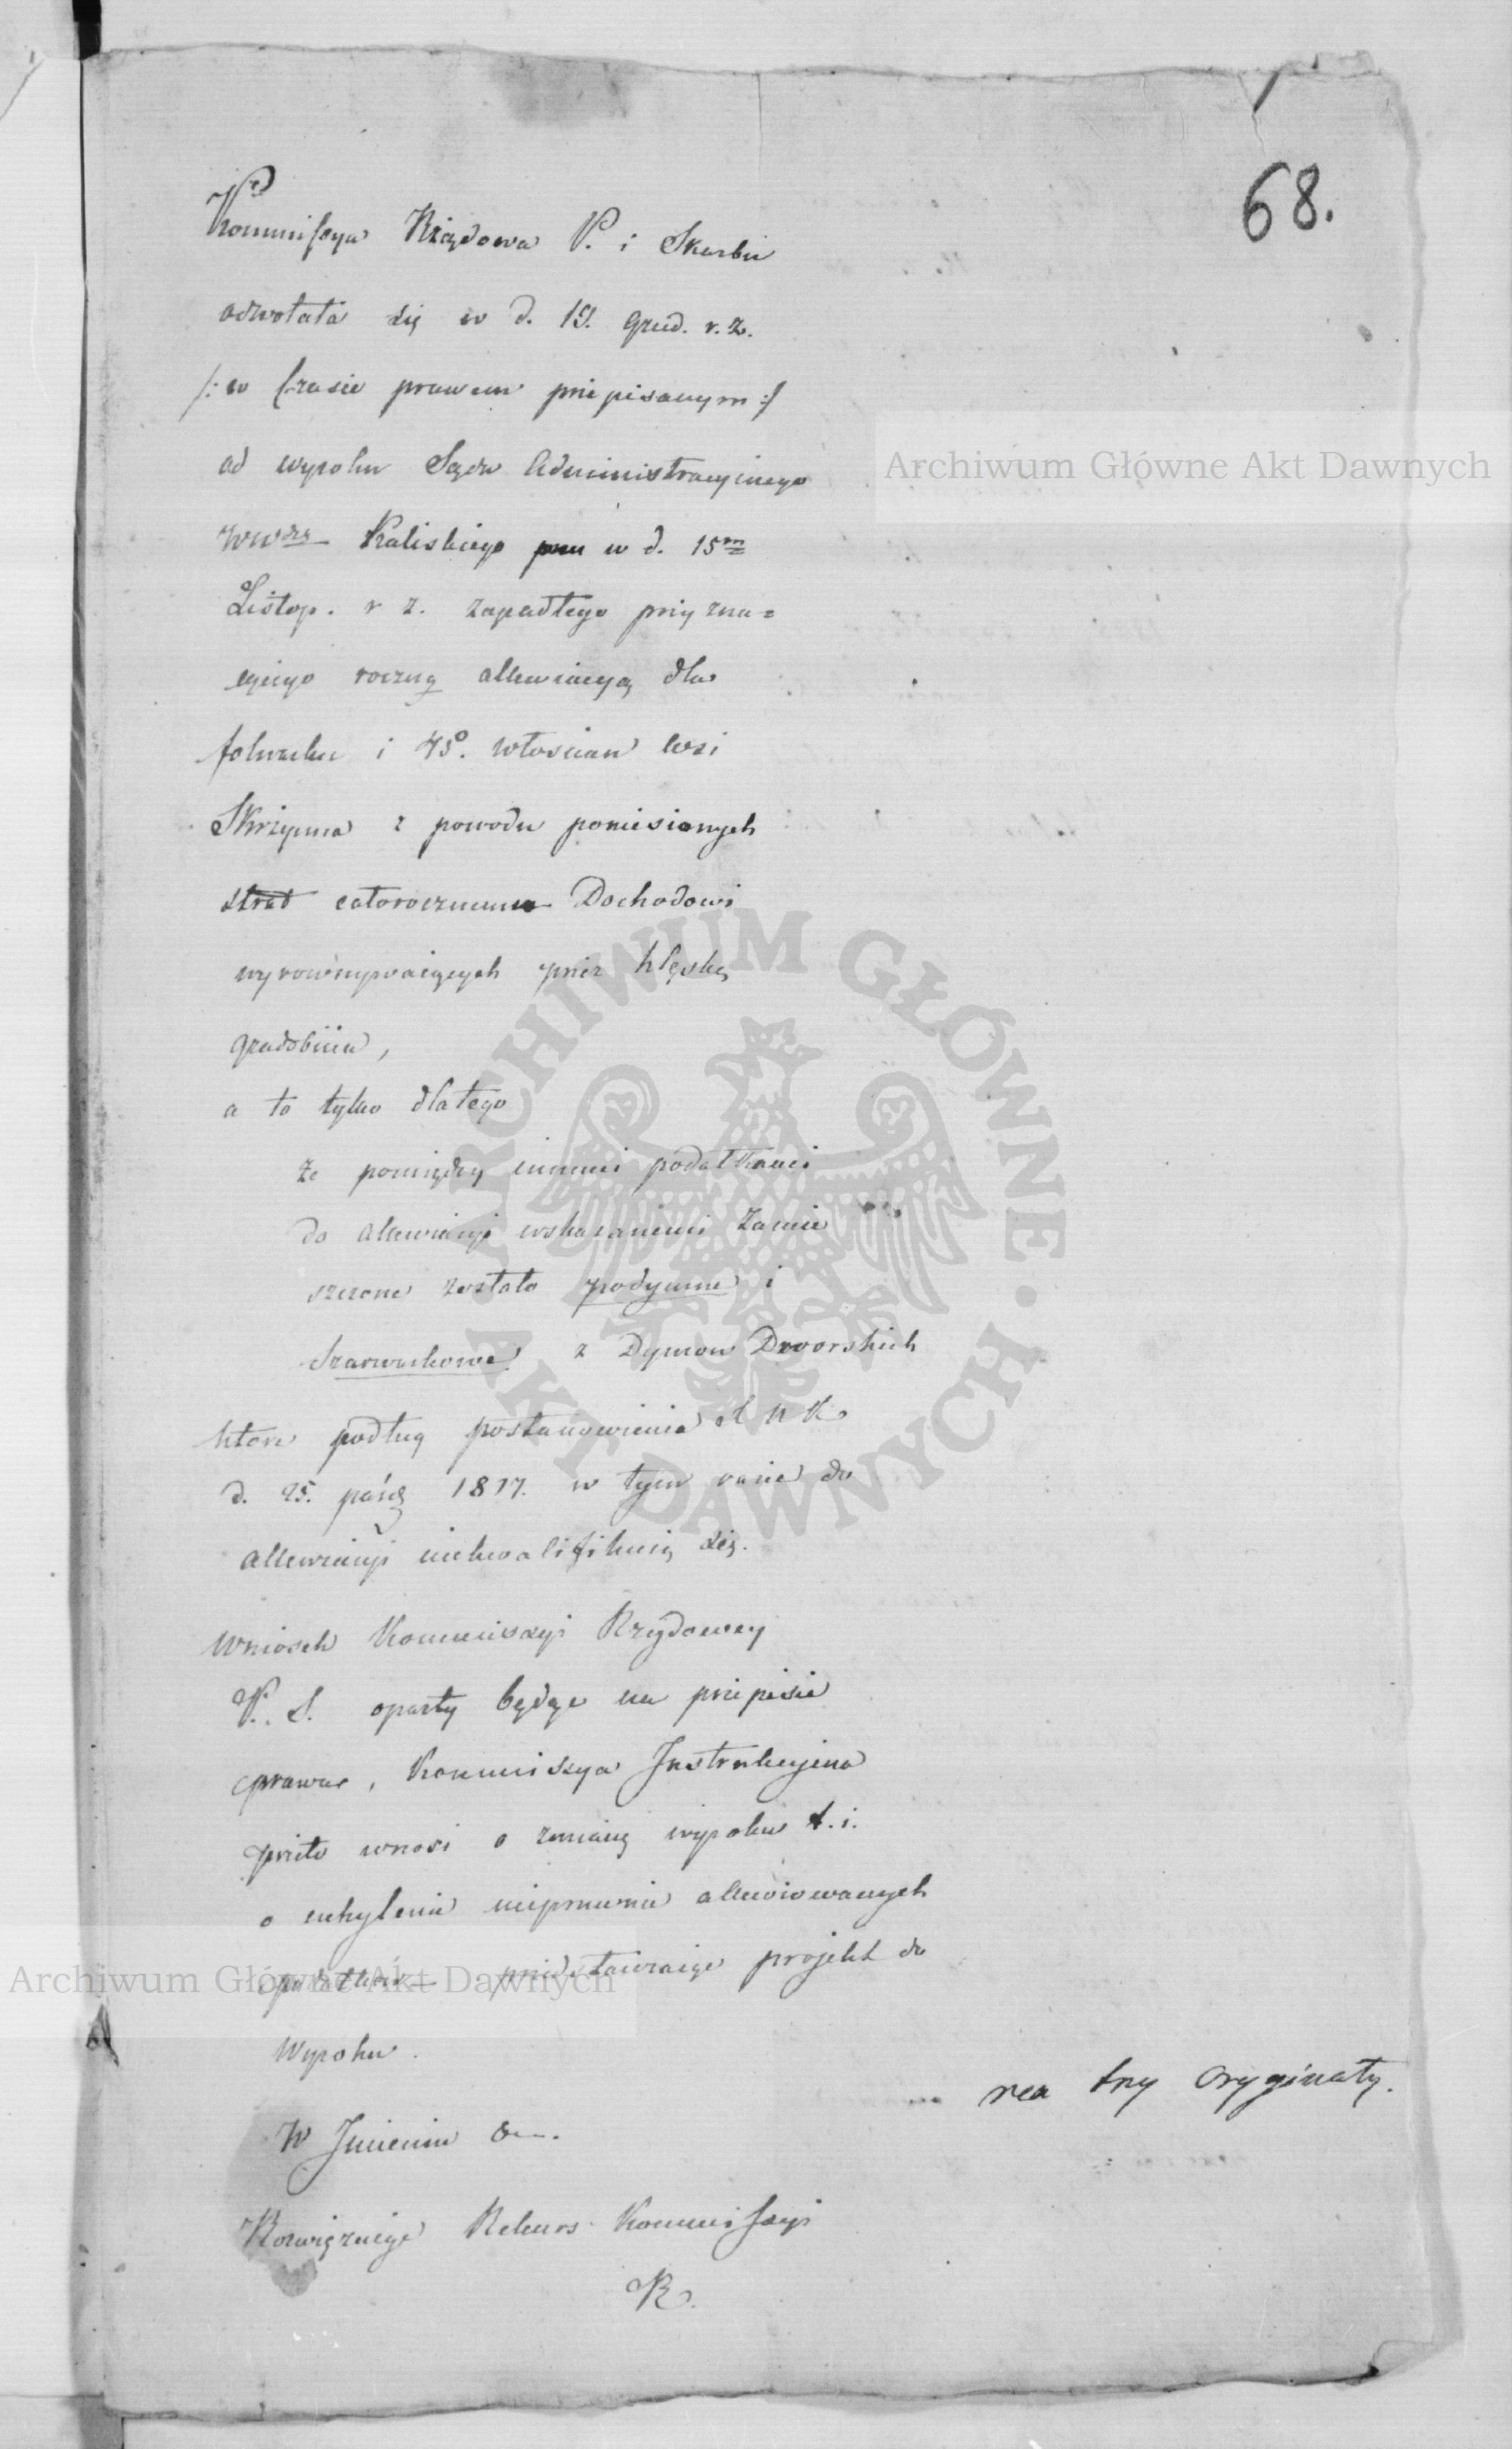 68.
Kommissya Rządowa P. i Skarbu
odwołała się w d. 19. Grud. r. z.
/: w Czasie prawem przepisanym :/
od wyroku Sądu Administracyinego
Wwdztwa Kaliskiego w d. 15m
Listop. r z. zapadłego przyzna=
iącego roczną allewiacyą dla
folwarku i 43o. włościan wsi
Skrzynna z powodu poniesionych
strat całorocznemu Dochodowi
wyrównywaiących przez klęskę
gradobicia,
a to tylko dlatego
że pomiędzy innemi podatkami
do alewiacyi wskazanemi zamie
szczone zostało podymne i
Szarwarkowe z Dymow Dworskich
które podług postanowienia X N K
d. 25. paźdź 1817. w tym razie do
allewiacyi niekwalifikuią się.
Wniosek Kommissyi Rządowey
P. S. oparty będąc na przepisie
prawa, Kommissya Instrukcyina
przeto wnosi o zmianę wyroku t. i.
o uchylenie nieprawnie alewiowanych
podatków przedstawiaiąc projekt do
Wyroku.
na trzy Oryginały.
W Imieniu &.
Rozwiązuiąc Rekurs Kommissyi
R.
Archiwum Główne Akt Dawnych
ARCHIWUM GŁÓWNE AKT DAWNYCH
Archiwum Główne Akt Dawnych